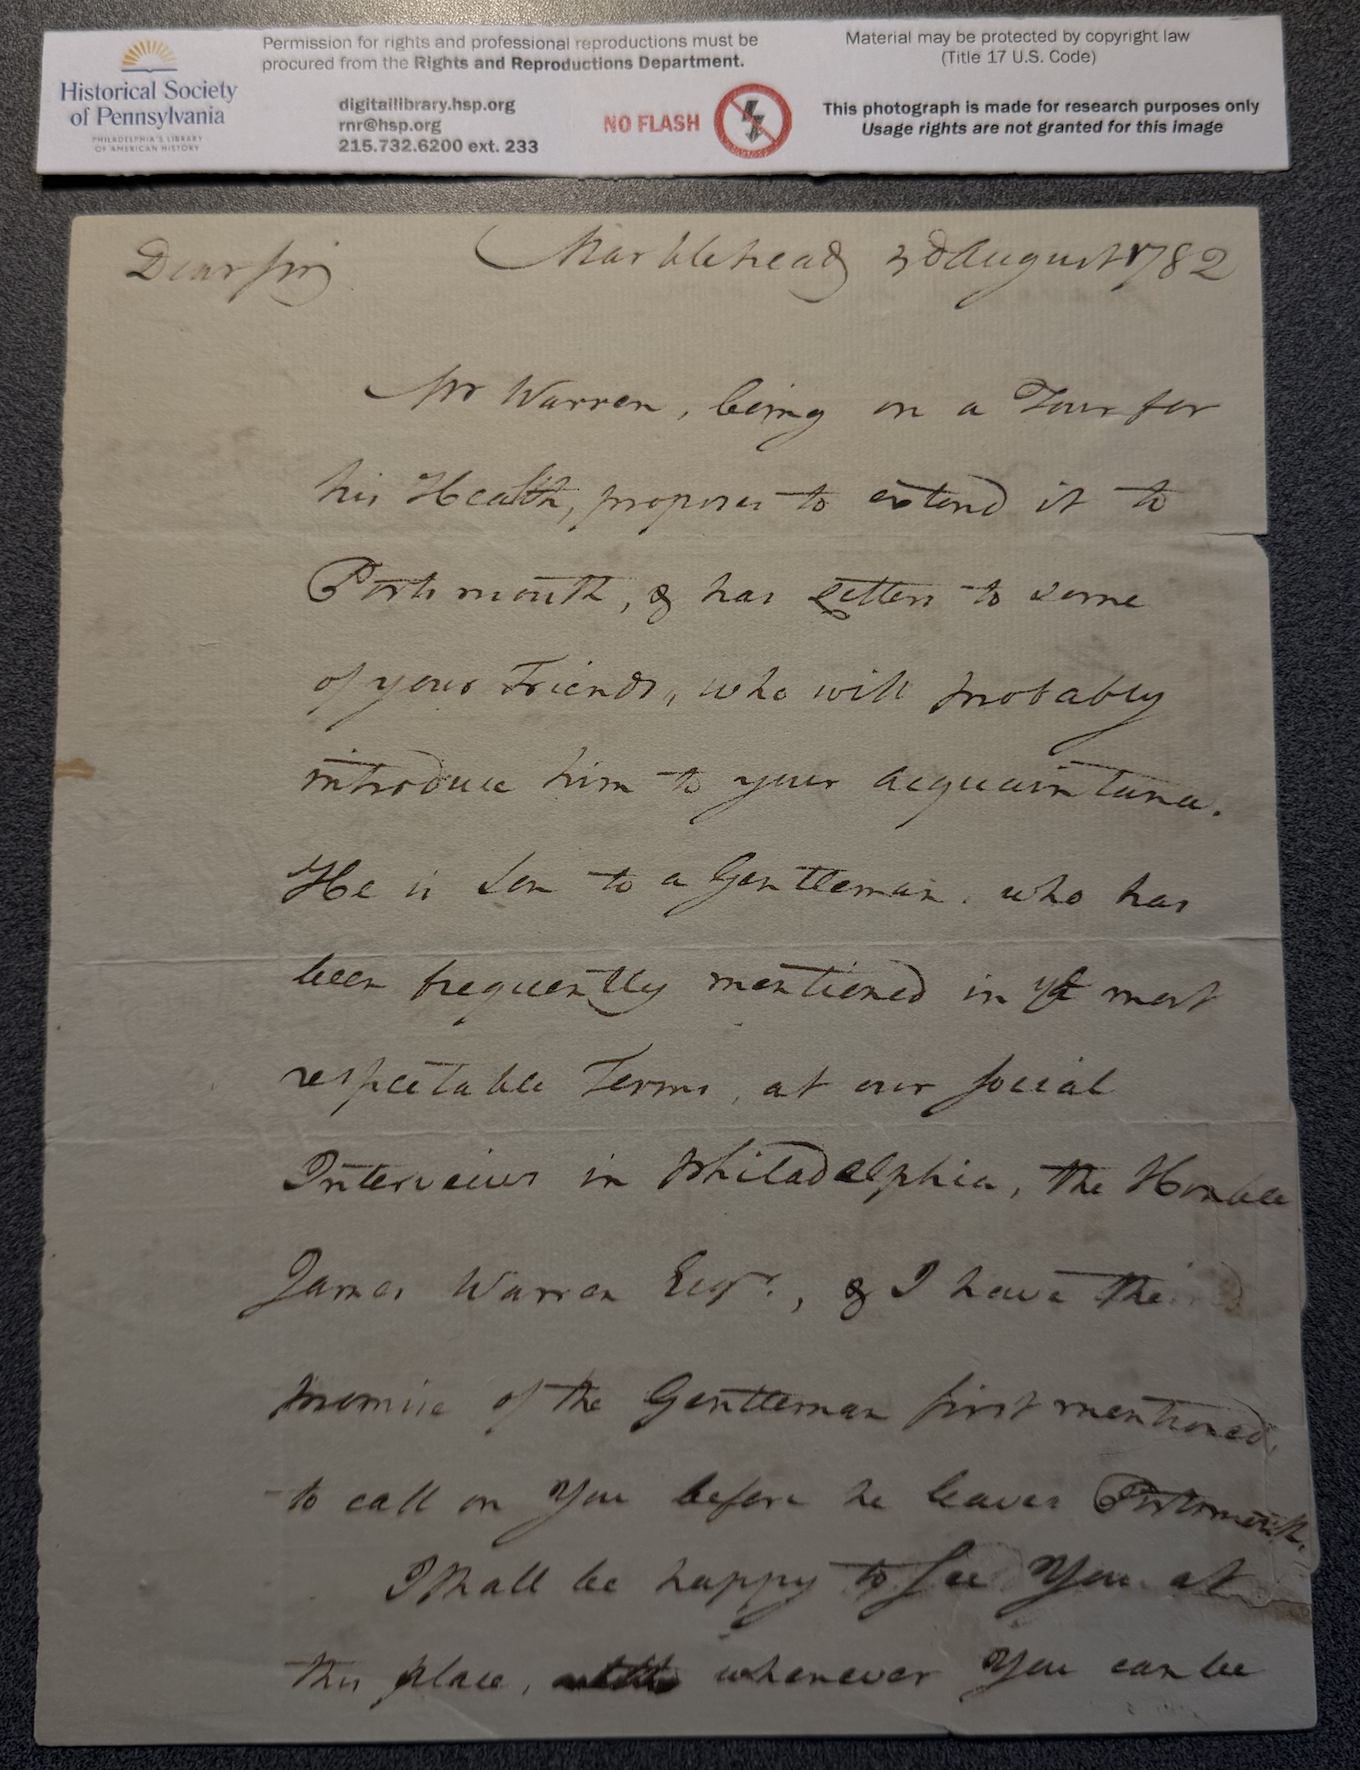 Historical Society
of Pennsylvania
PHILADELPHIA'S LIBRARY
OF AMERICAN HISTORY
Permission for rights and professional reproductions must be
procured from the Rights and Reproductions Department.
digitallibrary.hsp.org
rnr@hsp.org
215.732.6200 ext. 233
NO FLASH
Material may be protected by copyright law
(Title 17 U.S. Code)
This photograph is made for research purposes only
Usage rights are not granted for this image
Dear Sir Marblehead 3d August 1782
Mr Warren, being on a Tour for
his Health, proposes to extend it to
Portsmouth, & has Letters to some
of your Friends, who will probably
introduce him to your acquaintance.
He is Son to a Gentleman, who has
been frequently mentioned in ye most
respectable Terms, at our social
Interviews in Philadelphia, the Honble
James Warren Esqr., & I have the
promise of the Gentleman first mentioned,
to call on You before he leaves Portsmouth.
I shall be happy to see You at
this place, whenever You can be